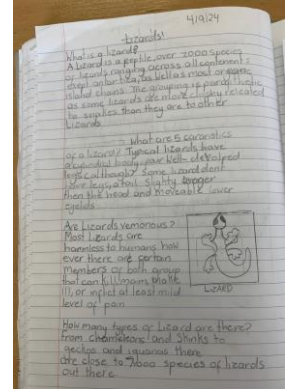 4/9/24
Lizards!
What is a lizard?
A Lizard is a reptile, over 7000 species
of lizards ranging across all contenents
exept antartica, as well as most
island chains. The grouping is
as some lizards are more closley related
to snakes than they are to other
Lizards
What are 5
of a lizard? Typical lizards have
a body, four well-
legs (although some lizards dont
have legs), a tail slighty longer
then the head and moveable lower
eyelids
Are Lizards venomous?
Most Lizards are
harmless to humans, how
ever there are certain
members of both group
that can kill, maim, make
ill, or inflict at least mild
level of pain
LIZARD
How many types of Lizard are there?
from and Skinks to
geckos and iguanas there
are close to 7000 species of lizards
out there